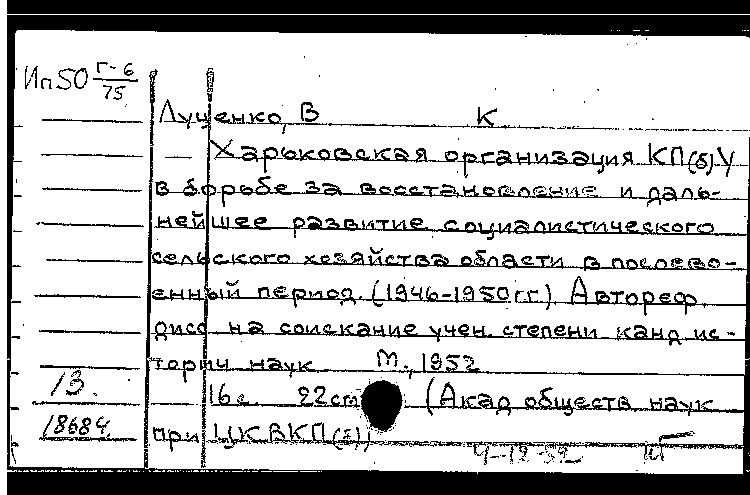 Ип50 Г-6/75
Луценко, В К
— Харьковская организация КП(б)У
в борьбе за восстановление и даль-
нейшее развитие социалистического
сельского хозяйства области в послево-
енный период. (1946-1950гг.) Автореф.
дисс на соискание учен. степени канд ис-
торич наук М., 1952
13. 16с. 22см (Акад обществ наук
18684. при ЦК ВКП(б))
9-12-52